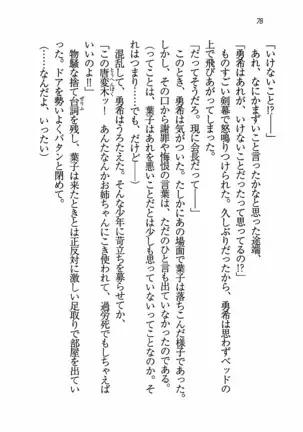 78
「いけないこと!?――」
　あれ、なにかまずいこと言ったかなと思った途端、
「勇希はあれが、いけないことだったって思ってるの!?」
　ものすごい剣幕で怒鳴りつけられた。久しぶりだったから、勇希は思わずベッドの
上で飛びあがってしまった。
「だってそうだろ。現に会長だって――」
　このとき、勇希は気がついた。たしかにあの場面で葉子は落ちこんだ様子であった。
しかし、その口から謝罪や悔恨の言葉は、ただのひと言も出ていなかったのだ。
（ってことは、葉子はあれを悪いことだとは少しも思っていないってことなのか。そ
れはつまり……でも、だけど――）
　混乱して、勇希はうろたえた。そんな少年に苛立ちを募らせてか、
「この唐変木ッ！　あんたなんかお姉ちゃんにこき使われて、過労死でもしちゃえば
いいのよ!!」
　物騒な捨て台詞を残し、葉子は来たときとは正反対に激しい足取りで部屋を出てい
った。ドアを勢いよくバタンと閉めて。
（……なんだよ、いったい）